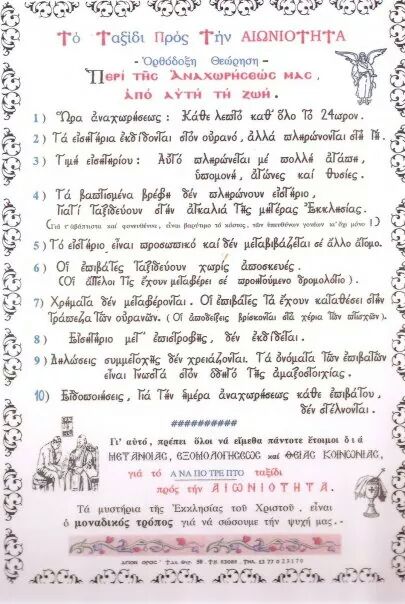 Τὸ Ταξίδι Πρὸς Τὴν ΑΙΩΝΙΟΤΗΤΑ
- Ὀρθόδοξη Θεώρηση -
Περὶ τῆς Ἀναχωρήσεώς μας,
ἀπὸ αὐτὴ τὴ ζωή.
1) Ὥρα ἀναχωρήσεως: Κάθε λεπτὸ καθ' ὅλο τὸ 24ωρον.
2) Τὰ εἰσητήρια ἐκδίδονται στὸν οὐρανό, ἀλλὰ πληρώνονται στὴ γῆ.
3) Τιμὴ εἰσητηρίου: Αὐτὸ πληρώνεται μὲ πολλὴ ἀγάπη,
ὑπομονή, ἀγῶνες καὶ θυσίες.
4) Τὰ βαπτισμένα βρέφη δὲν πληρώνουν εἰσητήριο,
γιατὶ Ταξιδεύουν στὴν ἀγκαλιὰ Τῆς μητέρας Ἐκκλησίας.
(Γιὰ τ' ἀβάπτιστα καὶ φονευθέντα, εἶναι βαρύτιμο τὸ κόστος, τῶν ὑπευθύνων γονέων κι' ὄχι μόνο!)
5) Τὸ εἰσητήριο εἶναι προσωπικὸ καὶ δὲν μεταβιβάζεται σὲ ἄλλο ἄτομο.
6) Οἱ ἐπιβάτες Ταξιδεύουν χωρὶς ἀποσκευές.
(Οἱ ἄγγελοι Τὶς ἔχουν μεταβέρει σὲ προηγούμενο δρομολόγιο).
7) Χρήματα δὲν μεταβέρονται. Οἱ ἐπιβάτες Τὰ ἔχουν καταθέσει στὴν
Τράπεζα Τῶν οὐρανῶν. (Οἱ ἀποδείξεις βρίσκονται στὰ χέρια τῶν πτωχῶν).
8) Εἰσητήριο μετ' ἐπιστροφῆς, δὲν ἐκδίδεται.
9) Δηλώσεις συμμετοχῆς δὲν χρειάζονται. Τὰ ὀνόματα Τῶν ἐπιβατῶν
εἶναι Γνωστὰ στὸν ὁδηγὸ Τῆς ἁμαξοστοιχίας.
10) Εἰδοποιήσεις, γιὰ Τὴν ἡμέρα ἀναχωρήσεως κάθε ἐπιβάτου,
δὲν στέλνονται.
##########
Γι' αὐτό, πρέπει ὅλοι νὰ εἴμεθα πάντοτε ἕτοιμοι διὰ
ΜΕΤΑΝΟΙΑΣ, ΕΞΟΜΟΛΟΓΗΣΕΩΣ καὶ ΘΕΙΑΣ ΚΟΙΝΩΝΙΑΣ,
γιὰ τὸ ΑΝΑΠΟΤΡΕΠΤΟ ταξίδι
πρὸς τὴν ΑΙΩΝΙΟΤΗΤΑ.
Τὰ μυστήρια τῆς Ἐκκλησίας τοῦ Χριστοῦ, εἶναι
ὁ μοναδικὸς τρόπος γιὰ νὰ σώσουμε τὴν ψυχή μας..-
ΑΓΙΟΝ ΟΡΟΣ